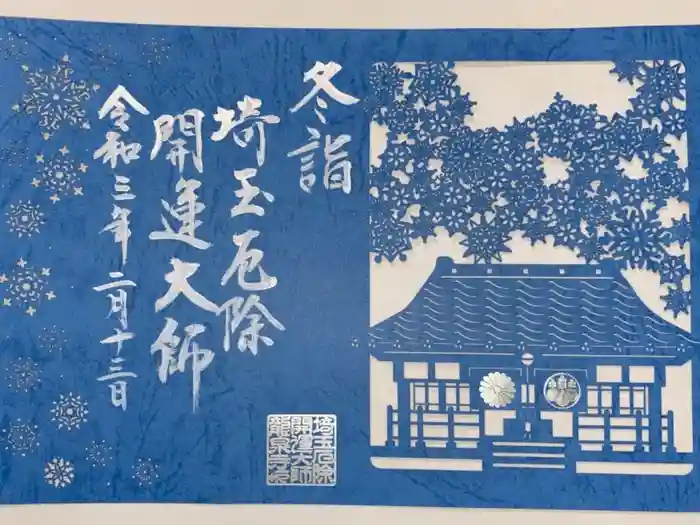 冬詣
埼玉厄除
開運大師
令和三年二月十三日
埼玉厄除
開運大師
龍泉寺印